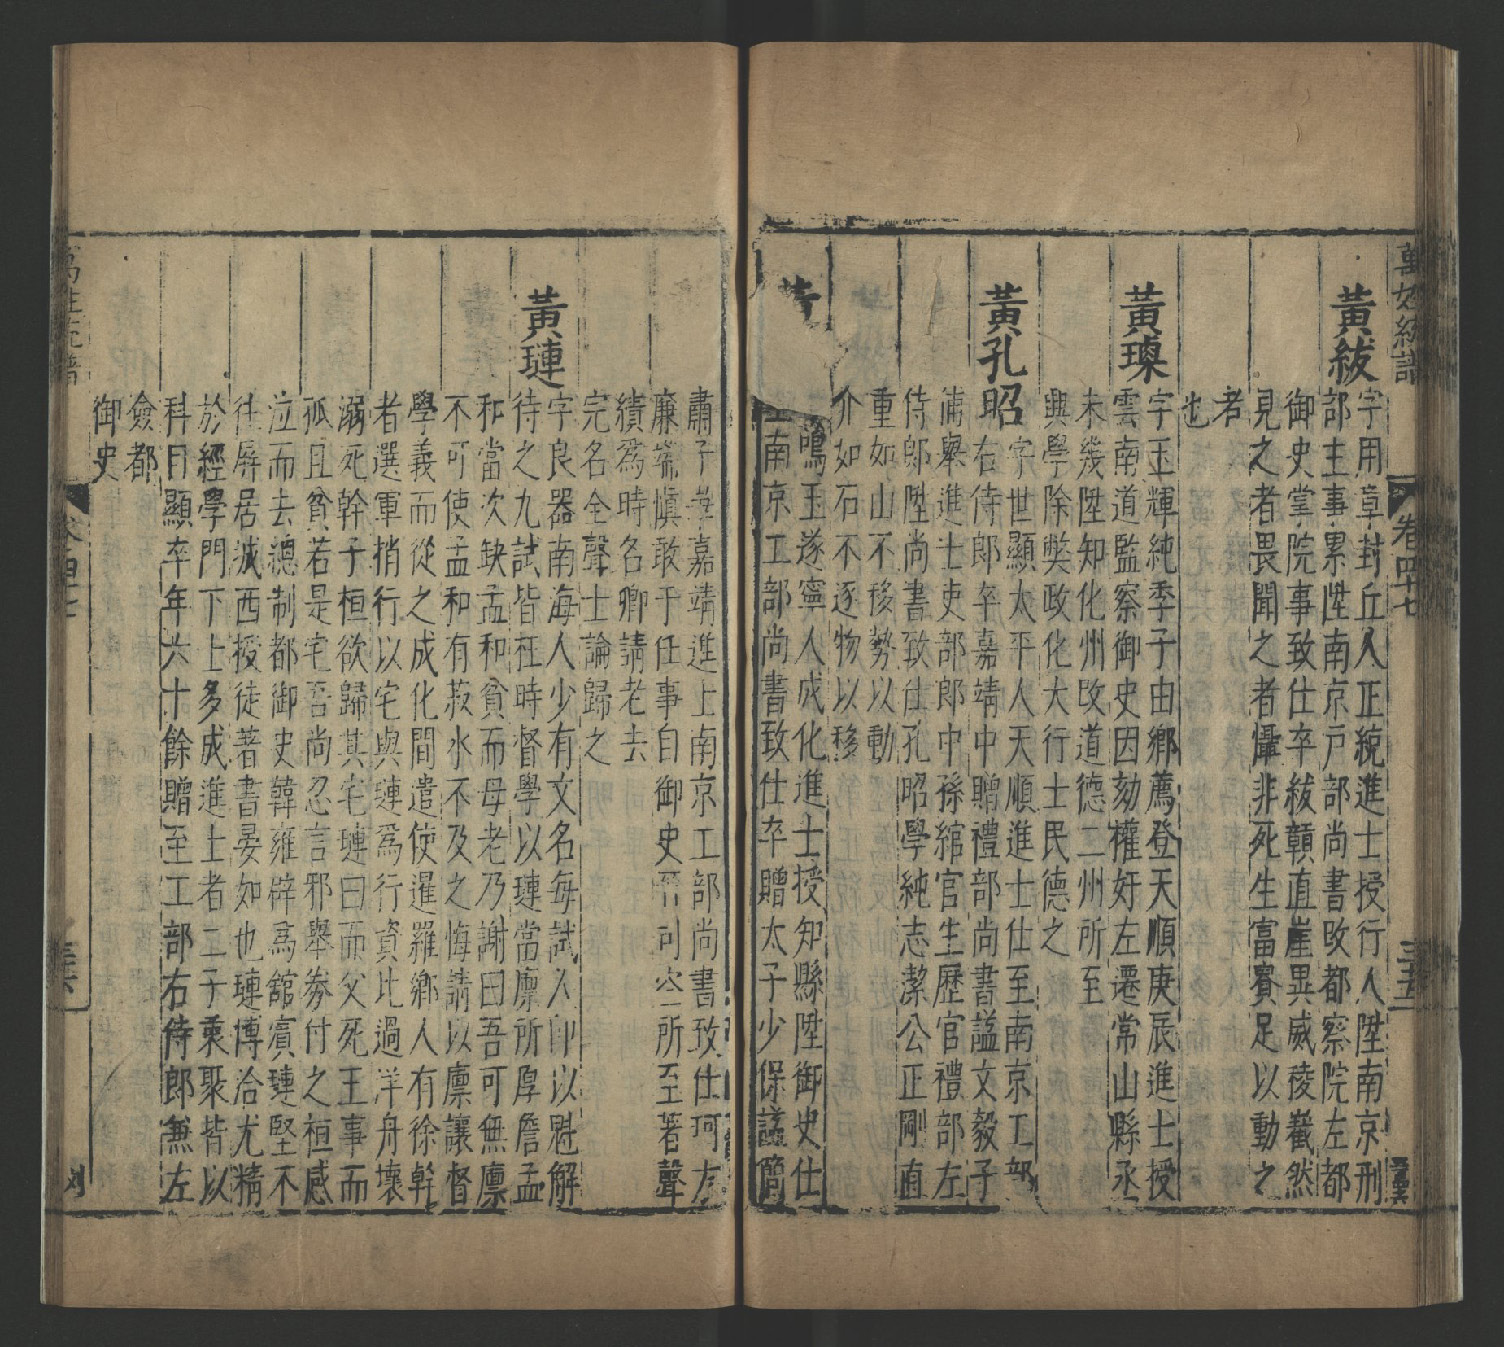 萬姓統譜
卷四十七
三十五
黃紱
字用章封丘人正統進士授行人陞南京刑
部主事累陞南京戶部尚書改都察院左都
御史掌院事致仕卒紱顇直崖異威稜巀然
見之者畏聞之者懾非死生富賽足以動之
者
也
黃㻞
字玉輝純季子由鄉薦登天順庚辰進士授
雲南道監察御史因劾權奸左遷常山縣丞
未幾陞知化州改道德二州所至
興學除獘政化大行士民德之
黃孔昭
字世顯太平人天順進士仕至南京工部
右侍郎卒嘉靖中贈禮部尚書謚文毅子
俌舉進士吏部郎中孫綰官生歷官禮部左
侍郎陞尚書致仕孔昭學純志潔公正剛直
重如山不移勢以動
介如石不逐物以移
鳴玉遂寧人成化進士授知縣陞御史仕
南京工部尚書致仕卒贈太子少保謚簡
肅子華嘉靖進士南京工部尚書致仕珂方
廉端慎敢于任事自御史所至著聲
績為時名卿請老去
完名全聲士論歸之
黃璉
字良器南海人少有文名每試入即以魁解
待之九試皆枉時督學以璉當廩所厚詹孟
和當次缺孟和貧而母老乃謝曰吾可無廩
不可使孟和有菽水不及之悔請以廩讓督
學義而從之成化間遣使暹羅鄉人有徐幹
者選軍揹行以宅與璉為行資比過洋舟壞
溺死幹子桓欲歸其宅璉曰而父死王事而
孤且貧若是宅吾尚忍言邪舉券付之桓感
泣而去總制都御史韓雍辟為舘賓璉堅不
往屏居城西授徒著書晏如也璉博洽尤精
於經學門下士多成進士者二子乘聚皆以
科目顯卒年六十餘贈至工部右侍郎兼左
僉都
御史
卷四十七
三十六